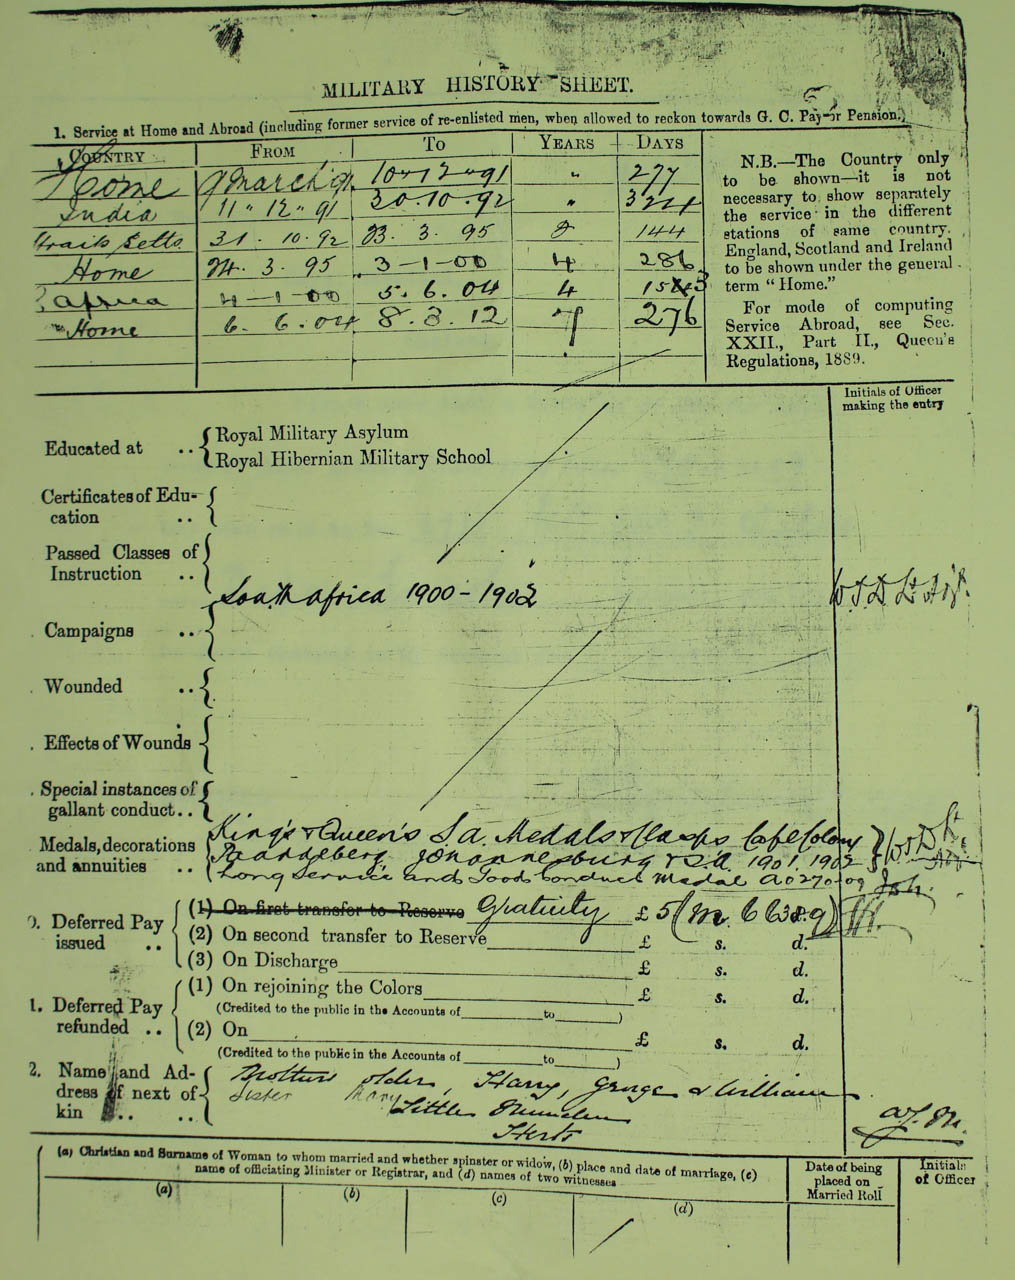 MILITARY HISTORY SHEET.
1. Service at Home and Abroad (including former service of re-enlisted men, when allowed to reckon towards G. C. Pay or Pension.)
COUNTRY FROM TO YEARS DAYS
Home 9 March 91 10 " 12 " 91 " 277
India 11 " 12 " 91 30.10.92 "
Straits Setts 31. 10. 92 23. 3. 95 2 144
Home 24. 3. 95 3-1-00 4 286
S. Africa 4-1-00 5. 6. 04 4
Home 6. 6. 04 8. 3. 12 7 276
N.B.—The Country only
to be shown—it is not
necessary to show separately
the service in the different
stations of same country.
England, Scotland and Ireland
to be shown under the general
term "Home."
For mode of computing
Service Abroad, see Sec.
XXII., Part II., Queen's
Regulations, 1889.
Initials of Officer
making the entry
Educated at .. Royal Military Asylum
Royal Hibernian Military School
Certificates of Edu-
cation ..
Passed Classes of
Instruction ..
South Africa 1900-1902
Campaigns ..
Wounded ..
Effects of Wounds
Special instances of
gallant conduct..
Medals, decorations
and annuities ..
King's & Queen's S.A. Medals & Clasps Cape Colony
Paardeberg Johannesburg & S.A. 1901, 1902
Long Service and Good Conduct Medal
0. Deferred Pay
issued ..
(1) On first transfer to Reserve Gratuity £ 5
(2) On second transfer to Reserve £ s. d.
(3) On Discharge £ s. d.
1. Deferred Pay
refunded ..
(1) On rejoining the Colors £ s. d.
(Credited to the public in the Accounts of to )
(2) On £ s. d.
(Credited to the public in the Accounts of to )
2. Name and Ad-
dress of next of
kin ..
Brothers older, Harry, George & William
Sister Mary Little Munden
Herts
(a) Christian and Surname of Woman to whom married and whether spinster or widow, (b) place and date of marriage, (c)
name of officiating Minister or Registrar, and (d) names of two witnesses
Date of being
placed on
Married Roll
Initials
of Officer
(a) (b) (c) (d)